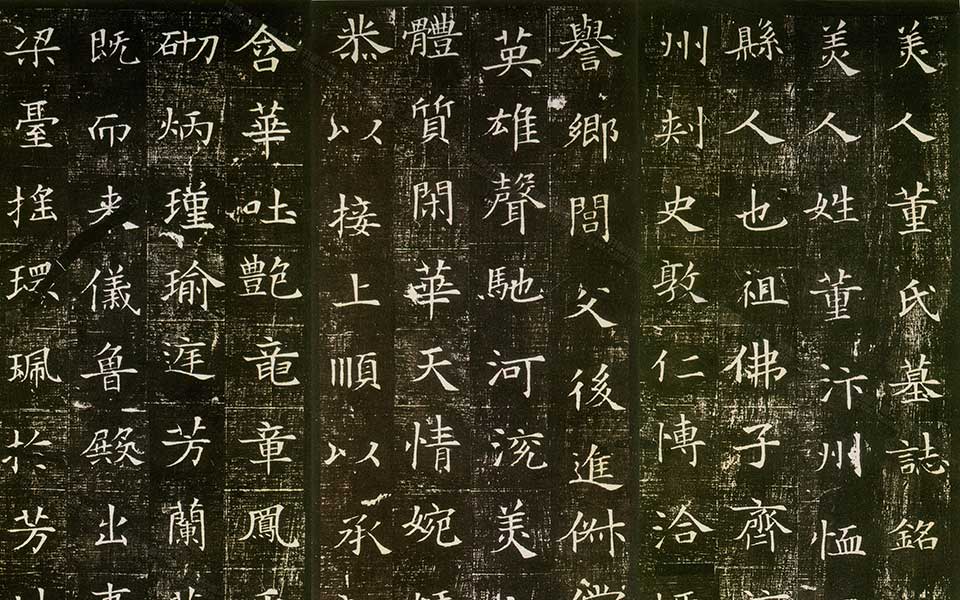 美人董氏墓誌銘
美人姓董汴州恤
縣人也祖佛子齊
州刺史敦仁博洽
譽鄉閭父後進俶
英雄聲馳河浣美
體質閑華天情婉
恭以接上順以承
含華吐艷竜章鳳
砌炳瑾瑜庭芳蘭
既而来儀魯殿出
梁臺搖環珮於芳